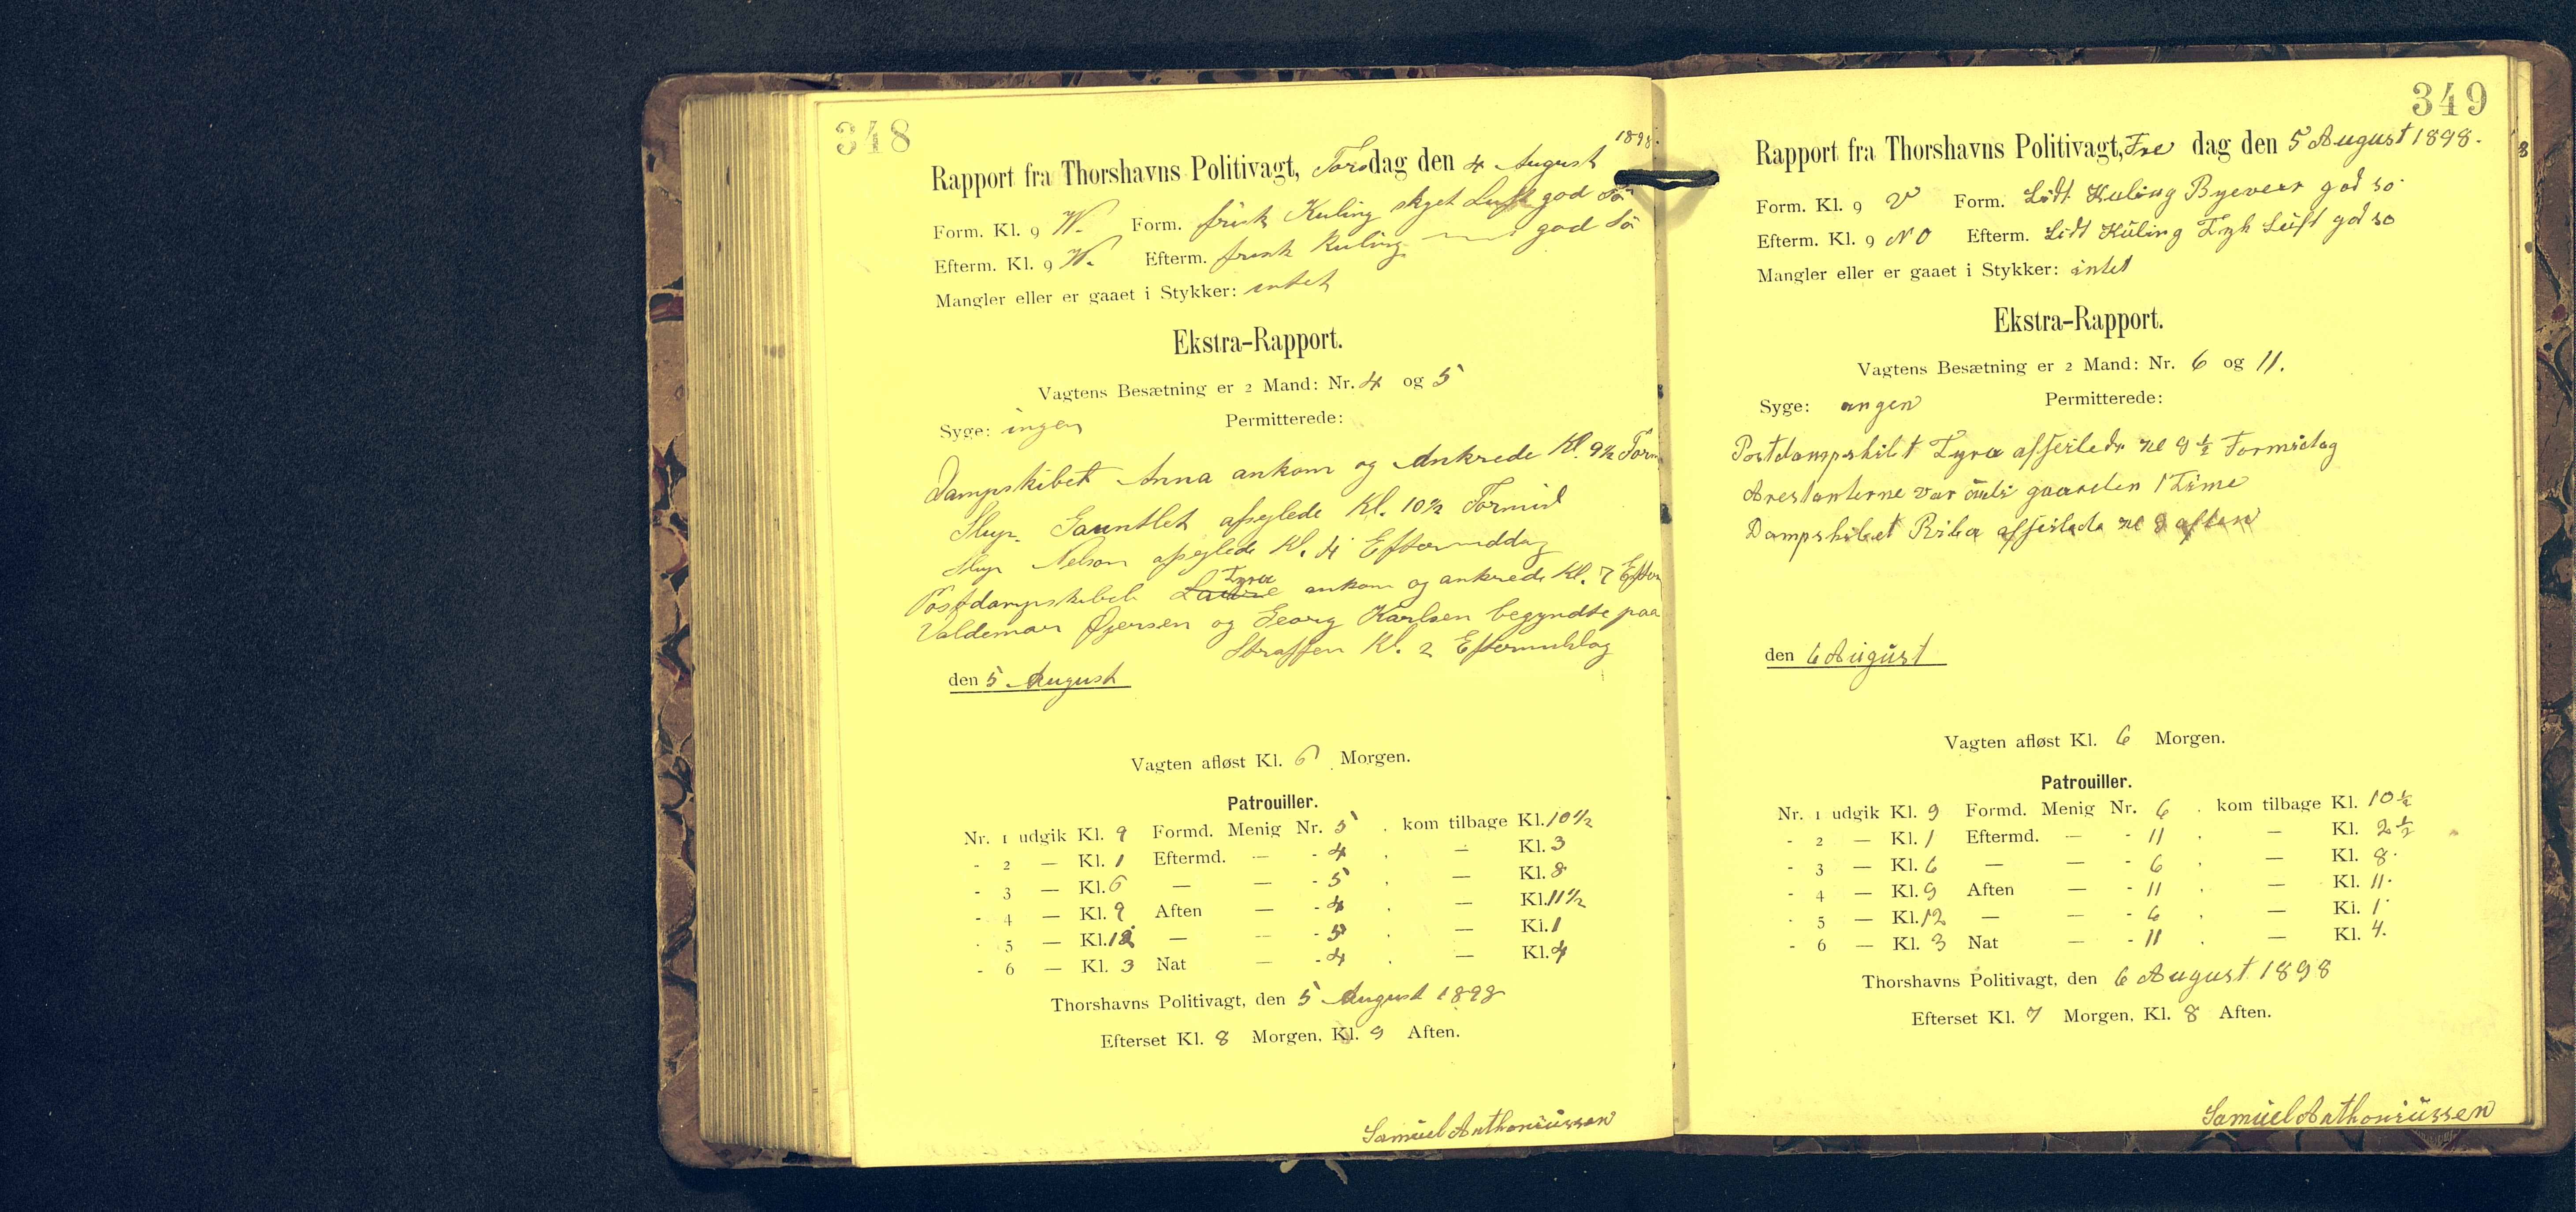 348
1898.
Rapport fra Thorshavns Politivagt, Torsdag den 4 August
Form. Kl. 9 W. Form. frisk Kuling skyet Luft god Sö
Efterm. Kl. 9 W. Efterm. frisk Kuling — " — god Sö
Mangler eller er gaaet i Stykker: intet
Ekstra-Rapport.
Vagtens Besætning er 2 Mand: Nr. 4 og 5
Syge: ingen Permitterede:
Dampskibet Anna ankom og Ankrede Kl. 9½ Form
Slup. Gauntlet afseglede Kl. 10½ Formid
Slup Nelson afseglede Kl. 4 Eftermiddag
Postdampskibet Laura Tyra ankom og ankrede Kl. 7 Efter
Valdemar Øjersen og Georg Karlsen begyndte paa
Straffen Kl. 2 Eftermiddag
den 5 August
Vagten afløst Kl. 6 Morgen.
Patrouiller.
Nr. 1 udgik Kl. 9 Formd. Menig Nr. 5 . kom tilbage Kl. 10½
- 2 — Kl. 1 Eftermd. — - 4 . — Kl. 3
- 3 — Kl. 6 — — - 5 . — Kl. 8
- 4 — Kl. 9 Aften — - 4 . — Kl. 11½
- 5 — Kl. 12 — — - 5 . — Kl. 1
- 6 — Kl. 3 Nat — - 4 . — Kl. 4
Thorshavns Politivagt, den 5 August 1898
Efterset Kl. 8 Morgen, Kl. 9 Aften.
Samuel Anthoniussen
349
Rapport fra Thorshavns Politivagt, Fre dag den 5 August 1898.
Form. Kl. 9 V Form. Lidt Kuling Byeveir god so
Efterm. Kl. 9 NO Efterm. Lidt Kuling Tyk Luft god so
Mangler eller er gaaet i Stykker: intet
Ekstra-Rapport.
Vagtens Besætning er 2 Mand: Nr. 6 og 11.
Syge: ingen Permitterede:
Postdampskibet Tyra afseilede Kl 9½ Formidag
Arestanterne var gaarden 1 Time
Dampskibet Riba afseilede Kl 8 aften
den 6 August
Vagten afløst Kl. 6 Morgen.
Patrouiller.
Nr. 1 udgik Kl. 9 Formd. Menig Nr. 6 . kom tilbage Kl. 10½
- 2 — Kl. 1 Eftermd. — - 11 . — Kl. 2½
- 3 — Kl. 6 — — - 6 . — Kl. 8.
- 4 — Kl. 9 Aften — - 11 . — Kl. 11.
- 5 — Kl. 12 — — - 6 . — Kl. 1
- 6 — Kl. 3 Nat — - 11 . — Kl. 4.
Thorshavns Politivagt, den 6 August 1898
Efterset Kl. 7 Morgen, Kl. 8 Aften.
Samuel Anthoniussen